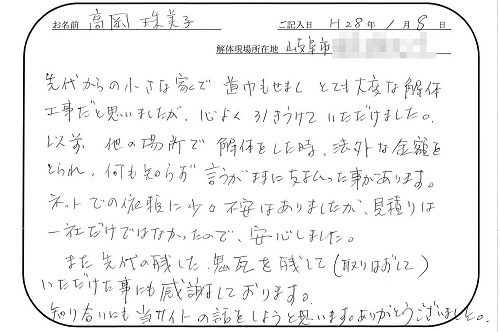 お名前 高岡 珠美子 ご記入日 H28年1月8日
解体現場所在地 山岐阜市
先代からの小さな家で 道巾もせまく とても大変な解体
工事だと思いましたが、心よく 引きうけて いただけました。
以前 他の場所で 解体をした時、法外な金額を
とられ、何も知らず 言うがままに支払った事があります。
ネットでの依頼に少々不安はありましたが、見積りは
一社だけではなかったので、安心しました。
また先代の残した 鬼瓦を残して(取りはずして)
いただけた事にも感謝しております。
知り合いにも 当サイトの話をしようと思います。ありがとうございました。